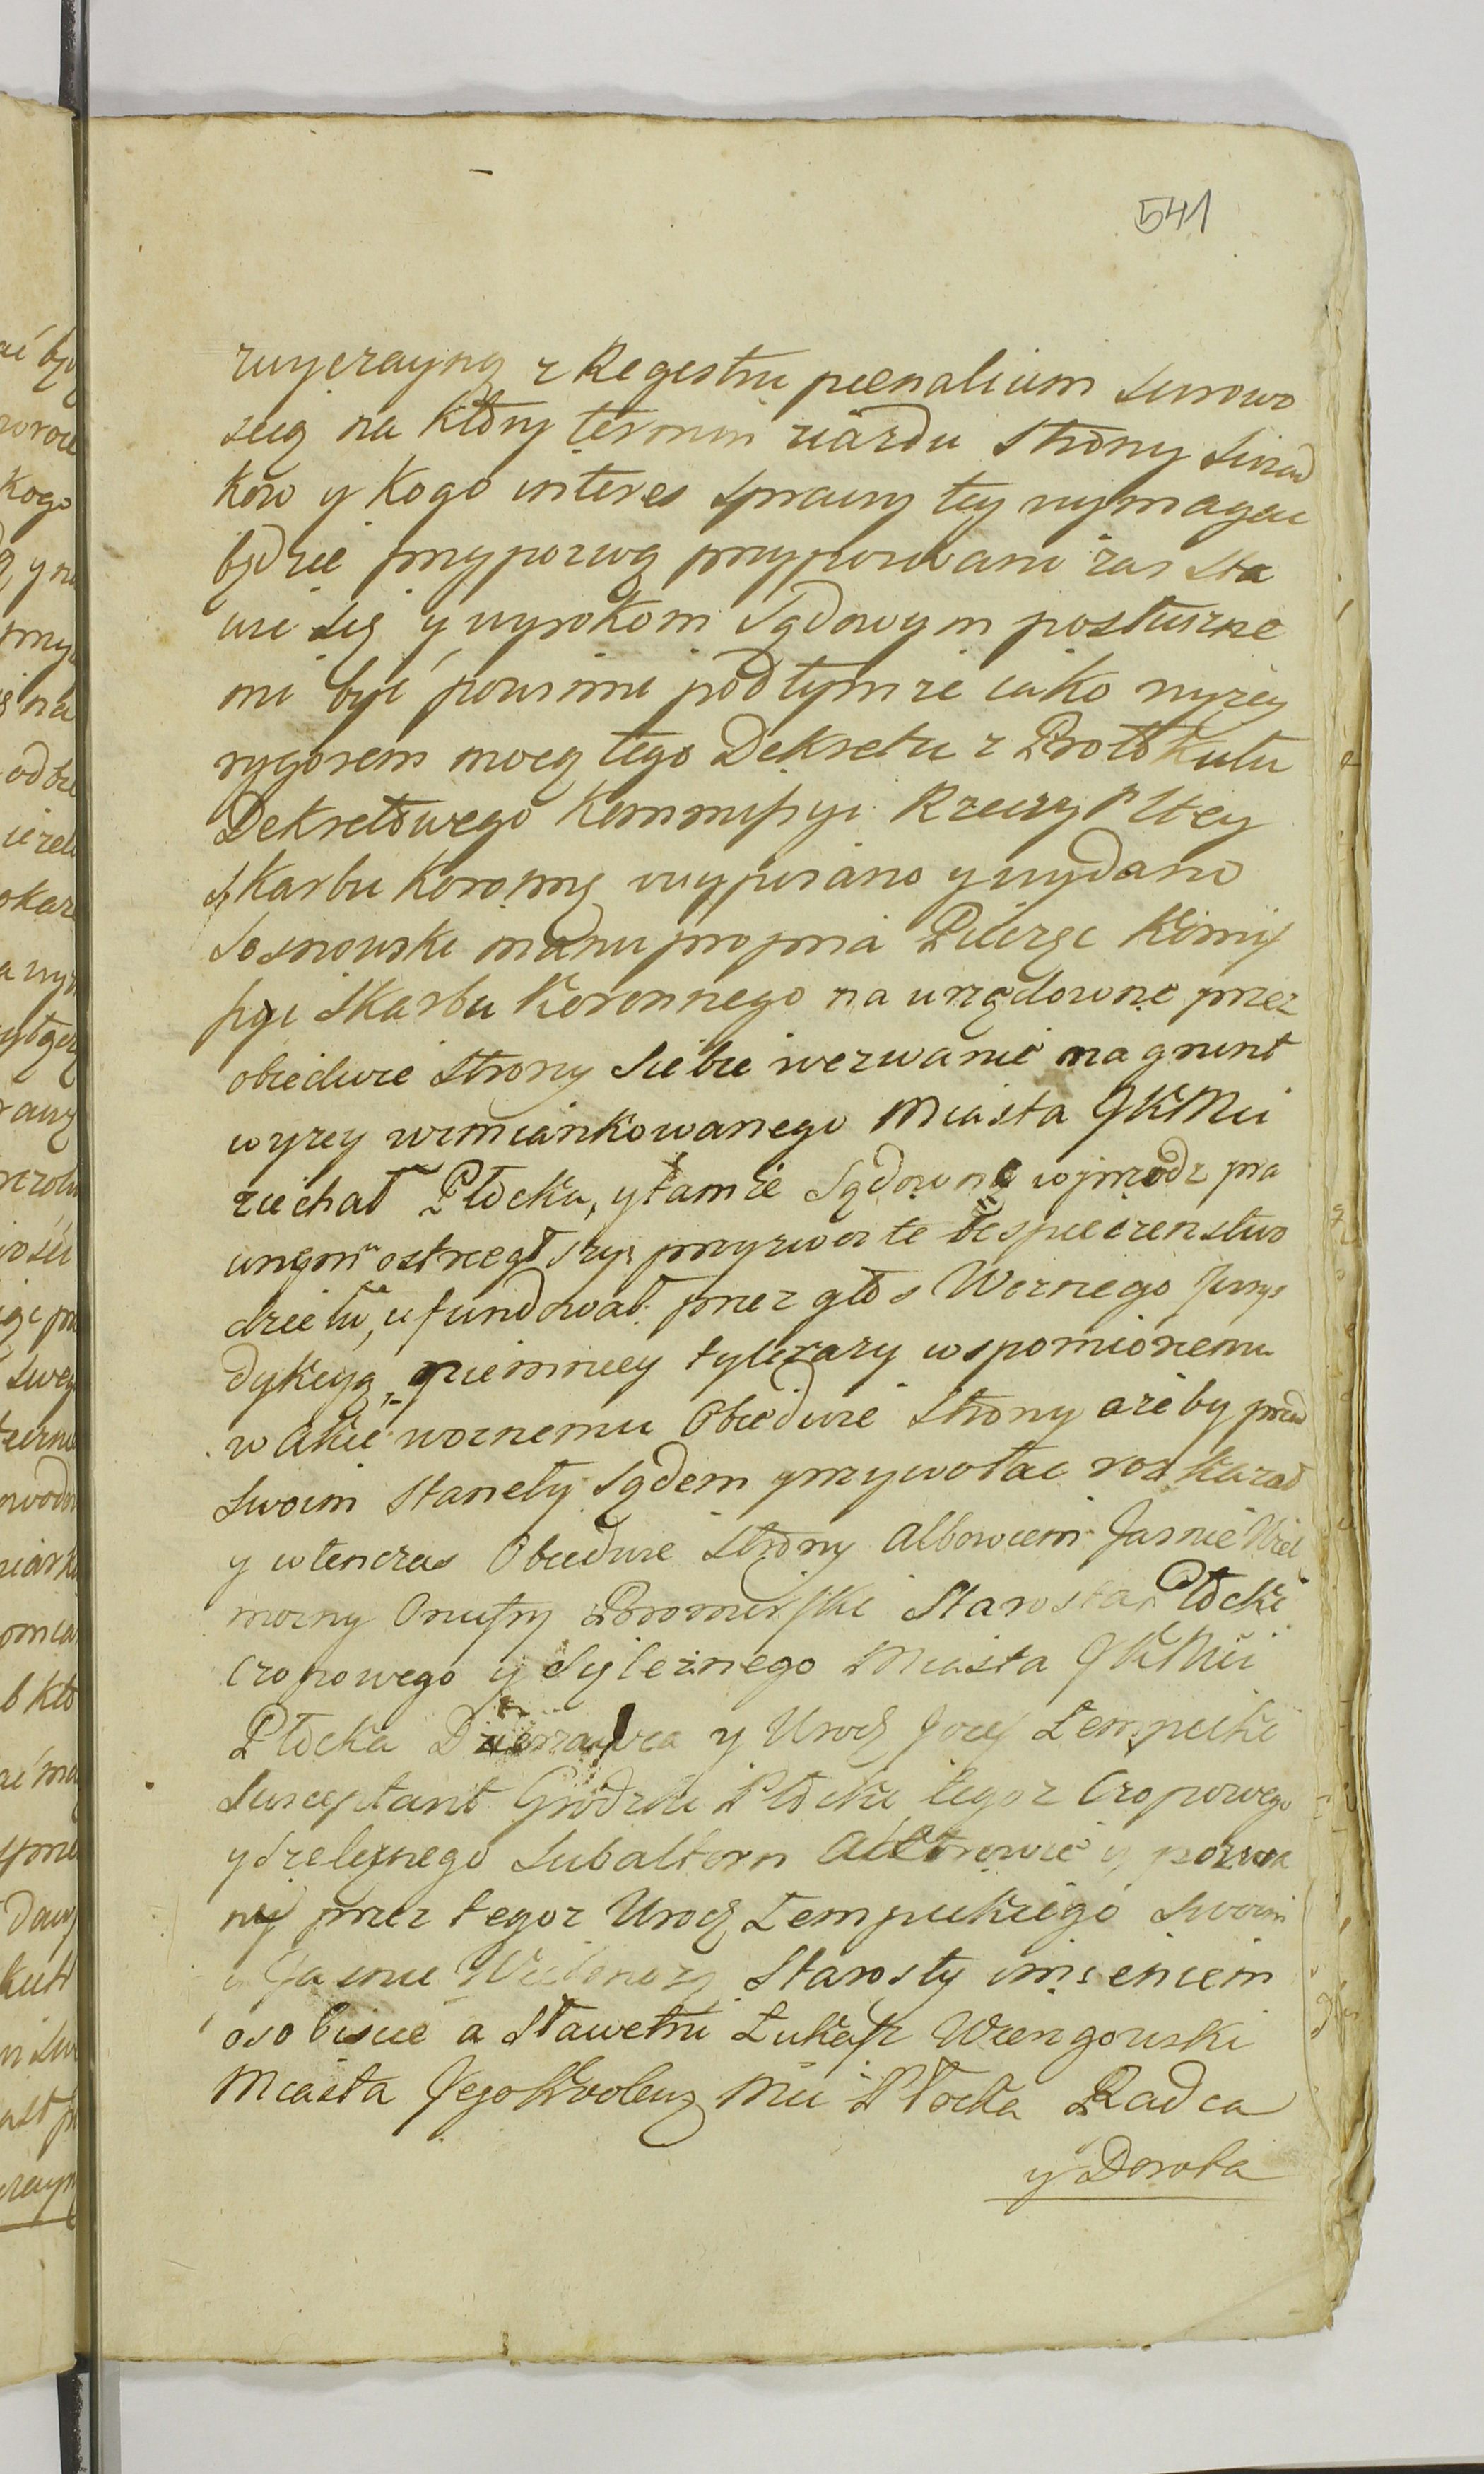 541
zwyczayną z Regestru poenalium surowo
scią na który termin ziazdu Strony Swiad
kow y kogo interes sprawy tey wymagac
będzie przypozwą przypozwani zas sta
wić się y wyrokom Sądowym posłuszne
mi być powinni pod tymze iako wyzey
rygorem mocą tego Dekretu z Protokułu
Dekretowego Kommissyi Rzeczy Pltey
Skarbu Koronnę wypisano y wydano
Sosnowski manu propria Pisarz Komis
syi Skarbu Koronnego na urzędowne przez
obiedwie Strony Siebie wezwanie na grunt
wyzey wzmiankowanego Miasta JKMci
ziechał Płocka, y tamże Sądowne wprzodz pra
wnym ostrzegłszy przyzwoite bespieczenstwo
dziełu, ufundował przez głos Woznego Jurys
dykcyą, niemniey tylerazy wspomionemu
w akcie woznemu Obiedwie Strony azeby przed
Swoim Staneły Sądem przywołac roskazał
y wtenczas Obiedwie Strony Albowiem Jasnie Wiel
mozny Onufry Starosta Płocki
Czopowego y Szlęznego Miasta JKMci
Płocka Dzierzawca y Urodz Jozef Lempicki
Susceptant Grodzki Płocki tegoz Czopowego
y Szeleznego Subaltern Aktorowie y pozwa
ny przez tegoz Urodz Lempickiego Swoim
y Jasnie Wielmozę Starosty imieniem
osobiscie a Sławetni Łukasz Wzengowski
Miasta JegoKrolewz Mci Płocka Radca
y Dorota